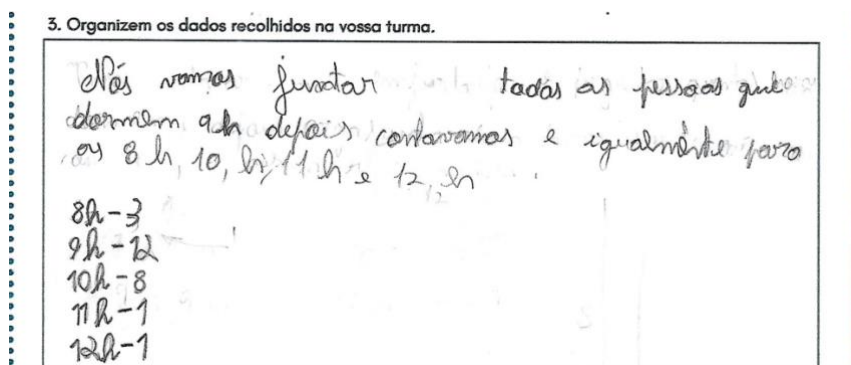 3. Organizem os dados recolhidos na vossa turma.
Nós vamos juntar todas as pessoas que
dormem 9h depois contavamos e igualmente para
os 8 h, 10, h, 11 h e 12, h
8h-3
9h-12
10h-8
11h-1
12h-1